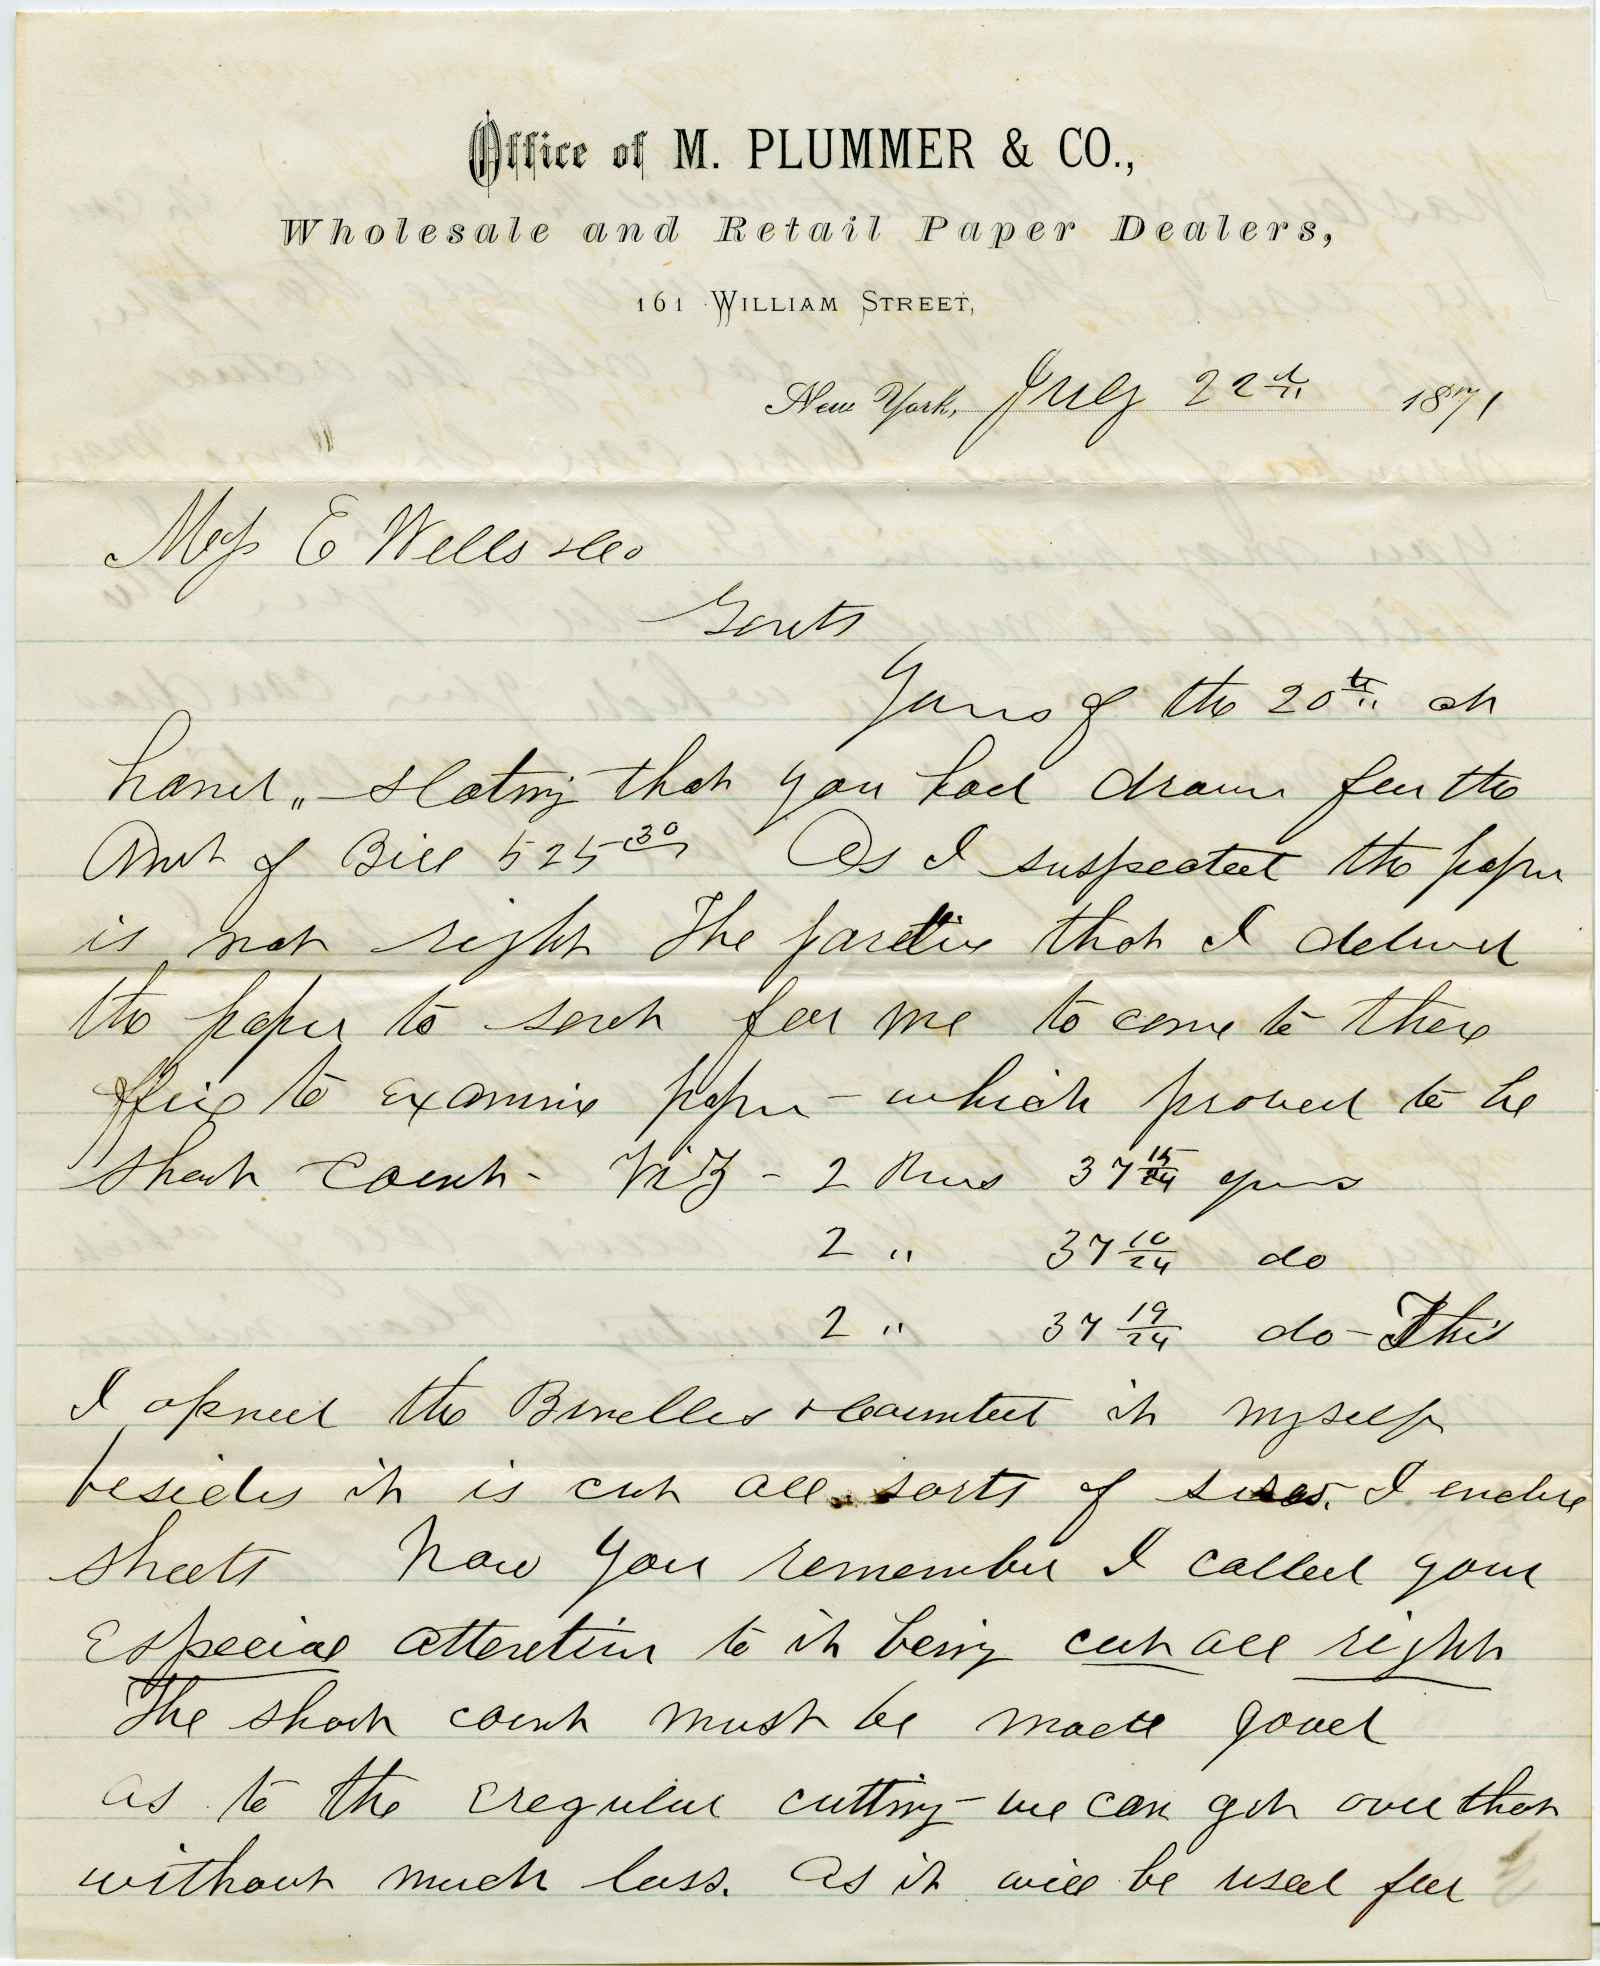 Office of M. PLUMMER & CO.,
Wholesale and Retail Paper Dealers,
161 WILLIAM STREET,
New York, July 22nd 1871
Mess E Wells & Co
Gents
Yours of the 20th at
hand, stating that you had drawn for the
Amt of Bill 525 30 As I suspected the paper
is not right The parties that I deliverd
the paper to sent for me to come to there
office to examine paper - which proved to be
short count - Viz - 2 Rms 37 15/24 qrs
2 " 37 10/24 do
2 " 37 19/24 do - This
I opned the Bundles & Counted it myself
besides it is cut all sorts of sizes. I enclose
sheets Now you remember I called your
Especial attention to it being cut all right
The short count must be made good
as to the eregular cutting - we can get over that
without much loss. As it will be used for